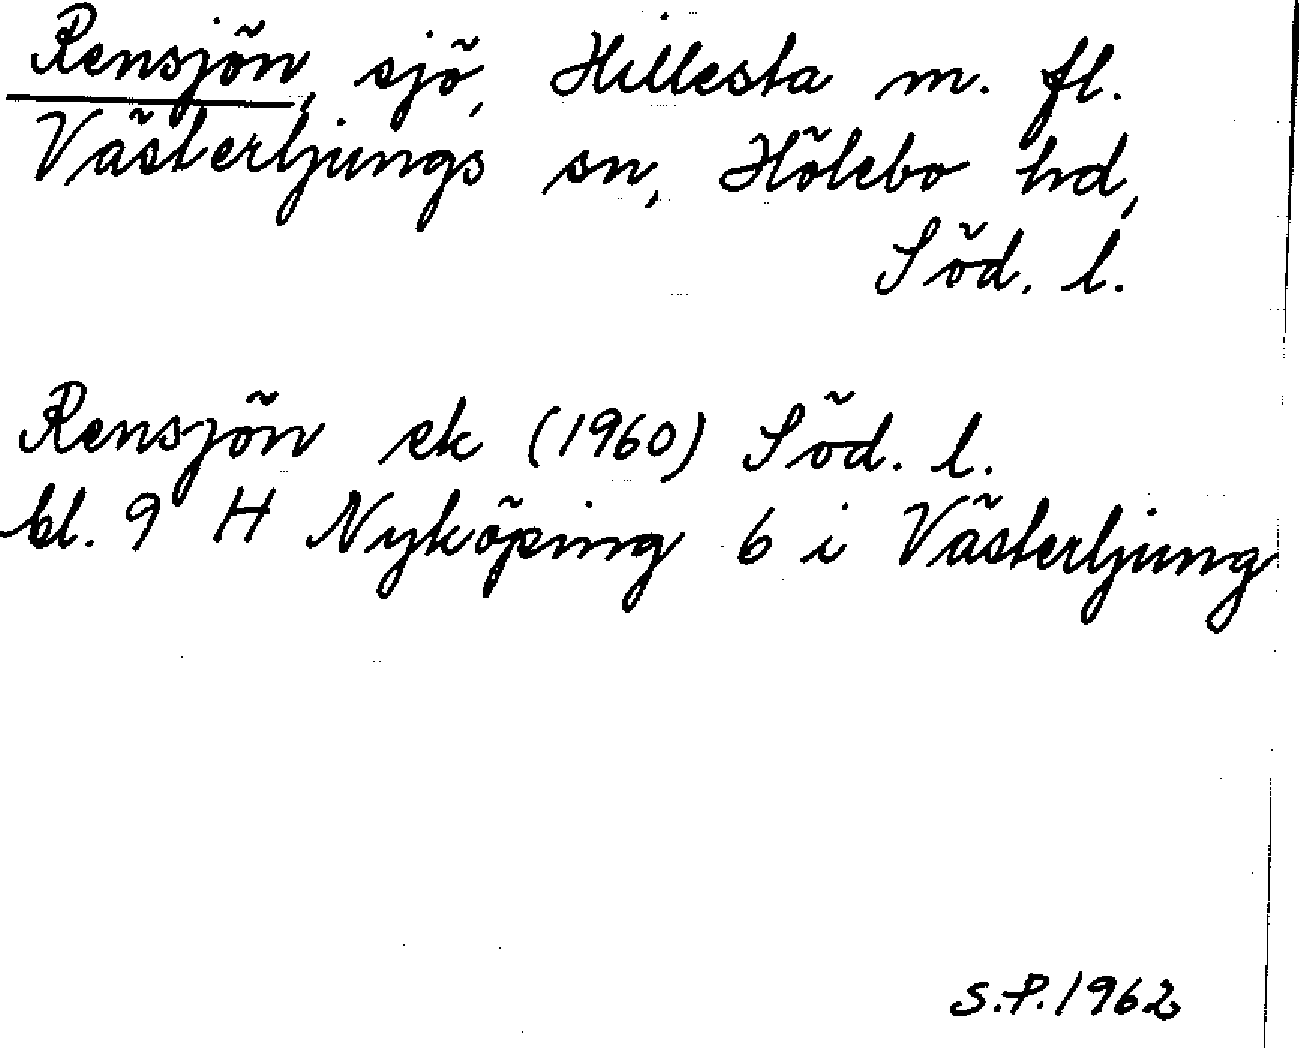 Rensjön, sjö, Hillesta m. fl.
Västerljungs sn, Hölebo hd,
Söd. l.
Rensjön ek (1960) Söd. l.
bl. 9 H Nyköping 6 i Västerljung
S.P. 1962